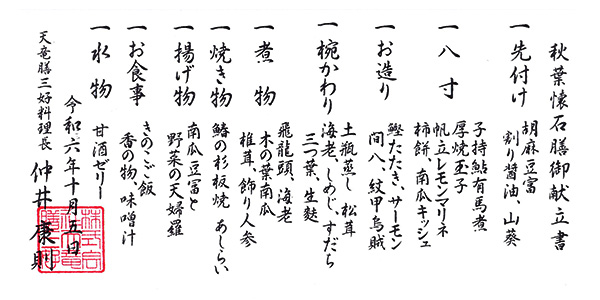 秋葉懐石膳御献立書
一先付け
胡麻豆富
割り醤油、山葵
一八寸
子持鮎有馬煮
厚焼玉子
帆立レモンマリネ
柿餅、南瓜キッシュ
一お造り
鰹たたき、サーモン
間八、紋甲烏賊
一椀かわり
土瓶蒸し 松茸
海老、しめじ、すだち
三つ葉、生麩
一煮物
飛龍頭、海老
木の葉南瓜
椎茸、飾り人参
一焼き物
鰆の杉板焼 あしらい
一揚げ物
南瓜豆富と
野菜の天婦羅
一お食事
きのこご飯
香の物、味噌汁
一水物
甘酒ゼリー
令和六年十月五日
天竜膳三好料理長 仲井康則